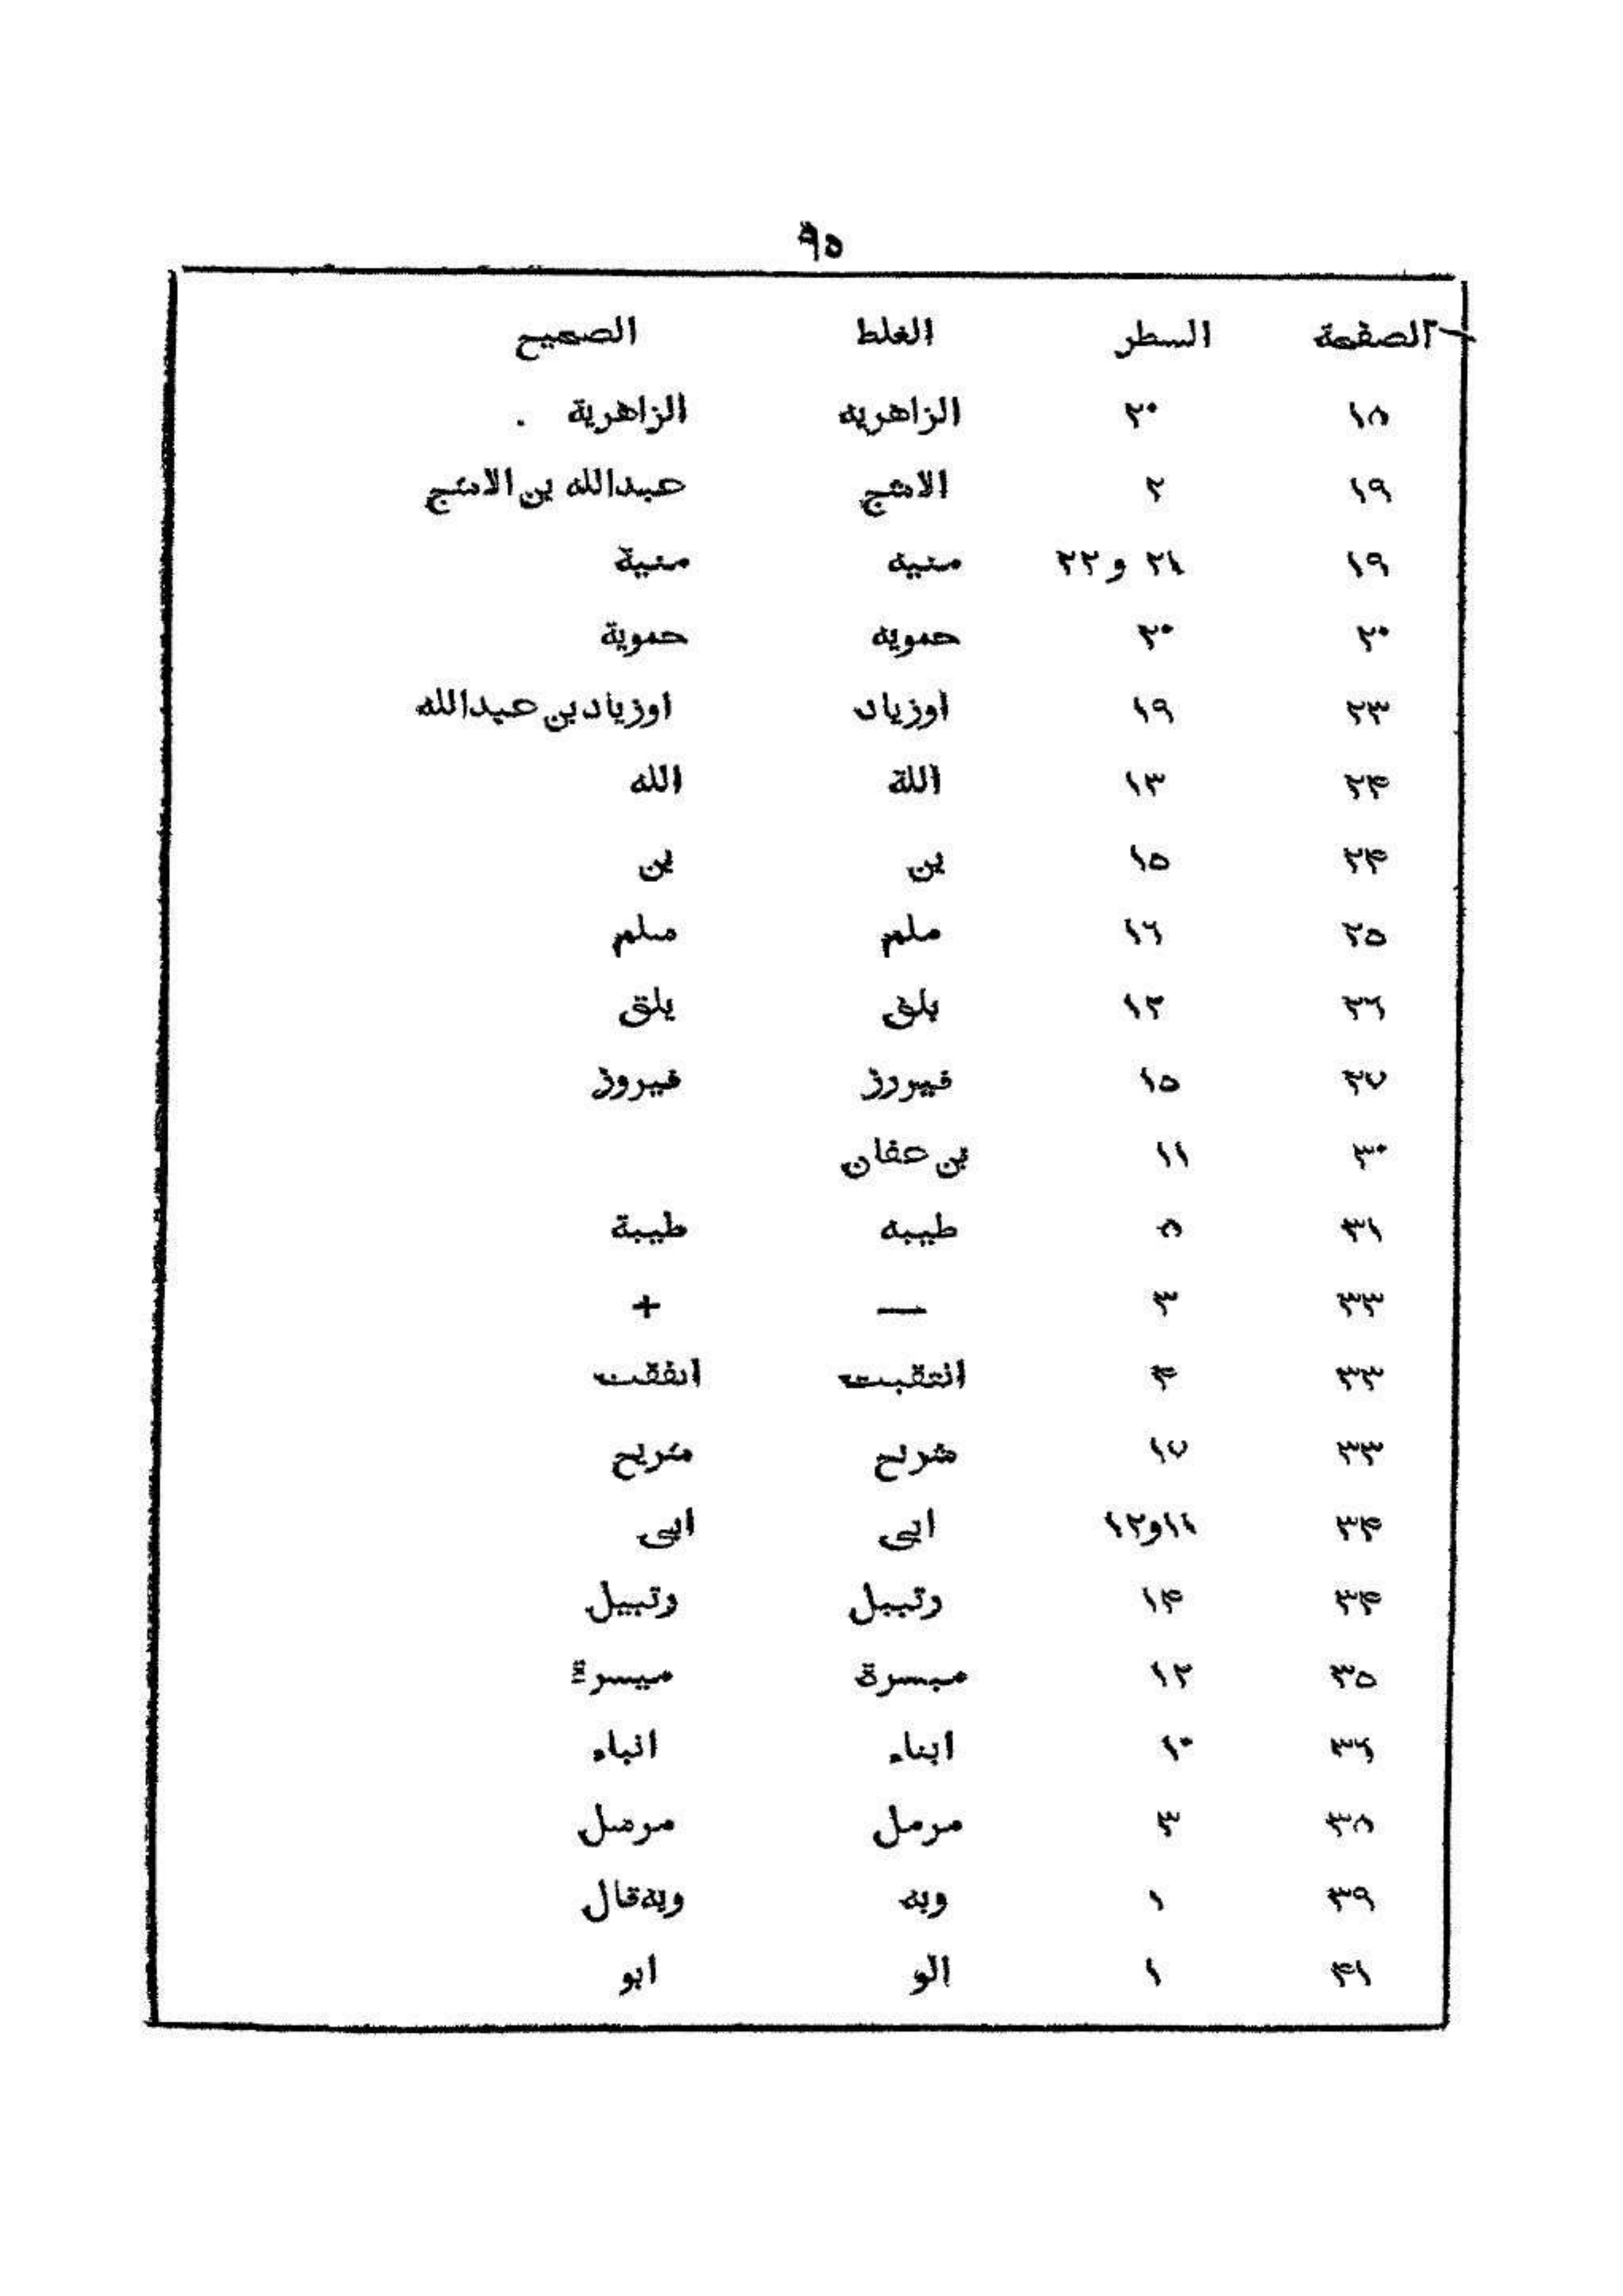 ٩٥
الصفحة السطر الغلط الصحيح
١٨ ٢٠ الزاهريه الزاهرية .
١٩ ٢ الاشج عبدالله بن الاشج
١٩ ٢١ و ٢٢ منيه منية
٢٠ ٢٠ حمويه حموية
٢٣ ١٩ اوزياد اوزياد بن عبدالله
٢٤ ١٣ اللة الله
٢٤ ١٥ ين بن
٢٥ ١٦ ملم مسلم
٢٦ ١٢ بلق يلق
٢٧ ١٥ فيررز فيروز
٣٠ ١١ بن عفان
٣١ ٨ طيبه طيبة
٣٣ ٣ — +
٣٣ ٤ انتقبت انفقت
٣٣ ١٧ شرلح شريح
٣٤ ١١و١٢ ابى
٣٤ ١٤ رتبيل
٣٥ ١٢ مبسرة ميسرة
٣٦ ١٠ ابناء انباء
٣٨ ٣ مرمل مرسل
٣٩ ١ وبه وبه قال
٤١ ١ الو ابو